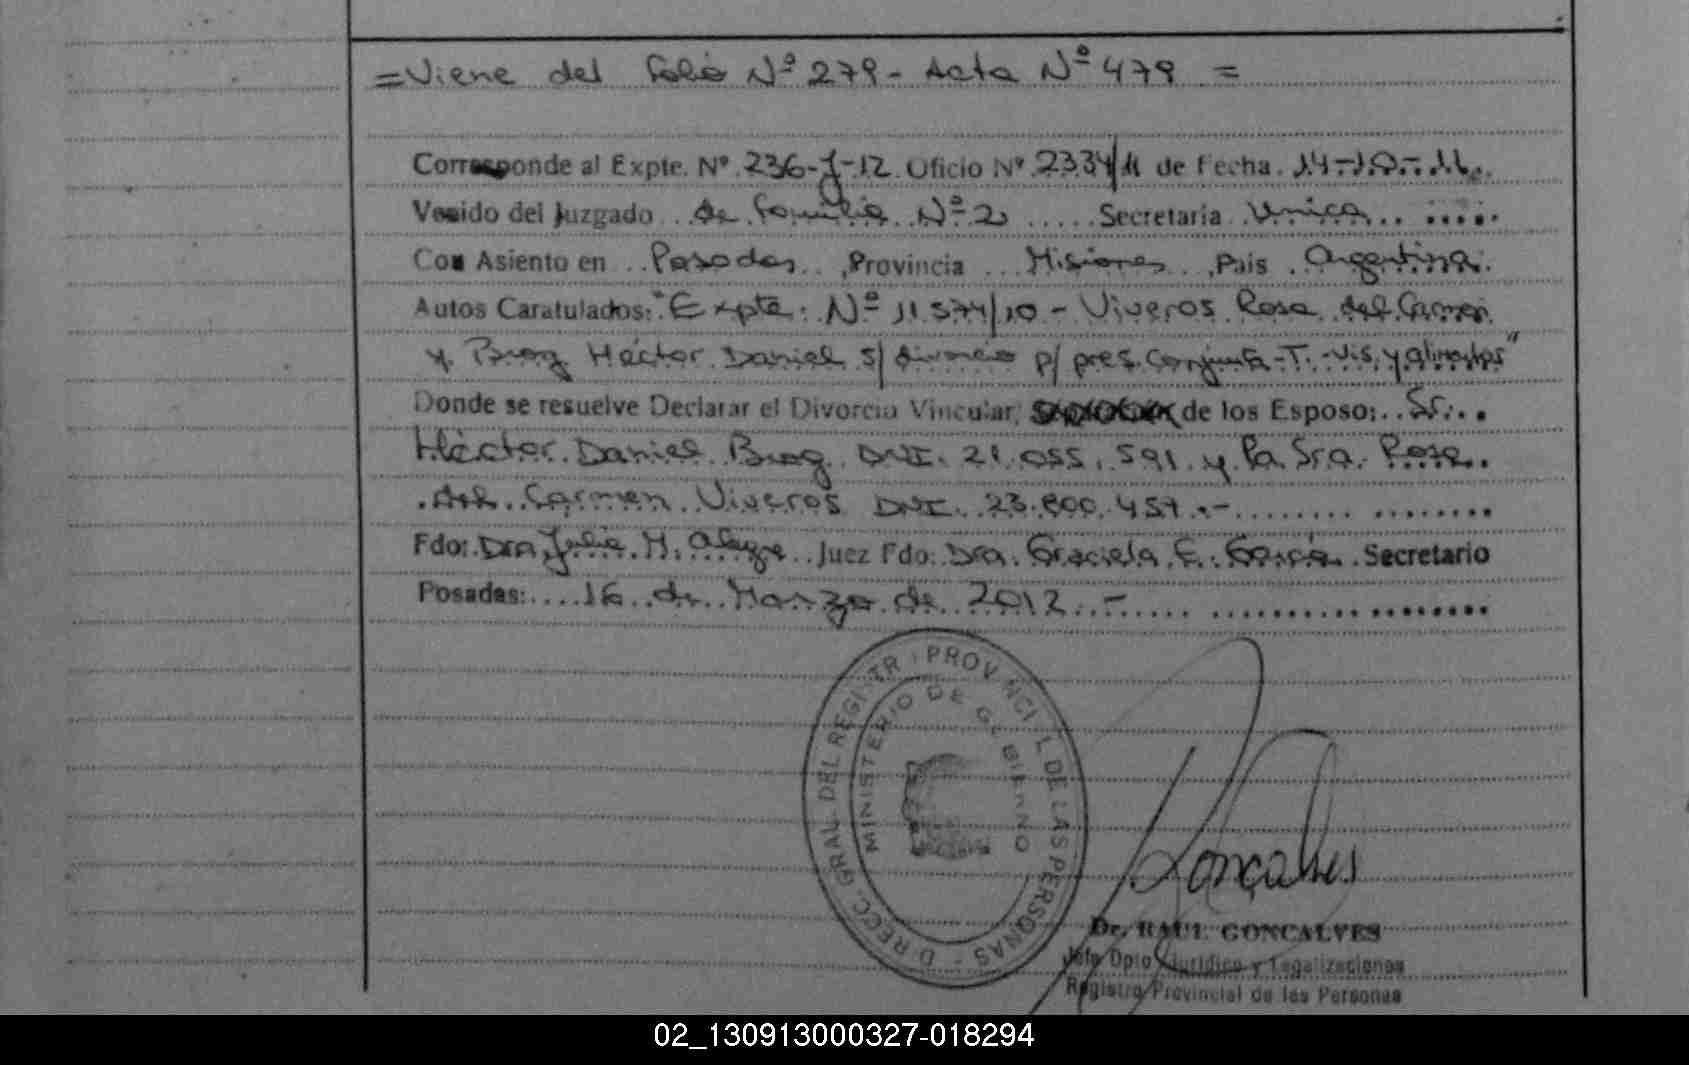 = Viene del folio Nº 279 - Acta Nº 479 =
Corresponde al Expte. Nº 236-J-12 Oficio Nº 2334/11 de Fecha 14-10-11.
Venido del Juzgado de Familia Nº 2 Secretaría Unica
Con Asiento en Posadas, Provincia Misiones, País Argentina.
Autos Caratulados: "Expte. Nº 11.574/10 - Viveros Rosa del Carmen
y Héctor Daniel s/ divorcio p/ pres. Conjunta - T. - Vis. y alimentos"
Donde se resuelve Declarar el Divorcio Vincular, de los Esposo: Sr.
Héctor Daniel DNI. 21.055.591 y la Sra. Rosa
del Carmen Viveros DNI. 23.800.457.-
Fdo: Dra. Julia M. Juez Fdo: Dra. Graciela E. García Secretario
Posadas: 16 de Marzo de 2012.-
DIRECC. GRAL. DEL REGISTR PROVINCIAL DE LAS PERSONAS -
MINISTERIO DE GOBIERNO
Goncalves
Dr. RAUL GONCALVES
Jefe Dpto Jurídico y Legalizaciones
Registro Provincial de las Personas
02_130913000327-018294